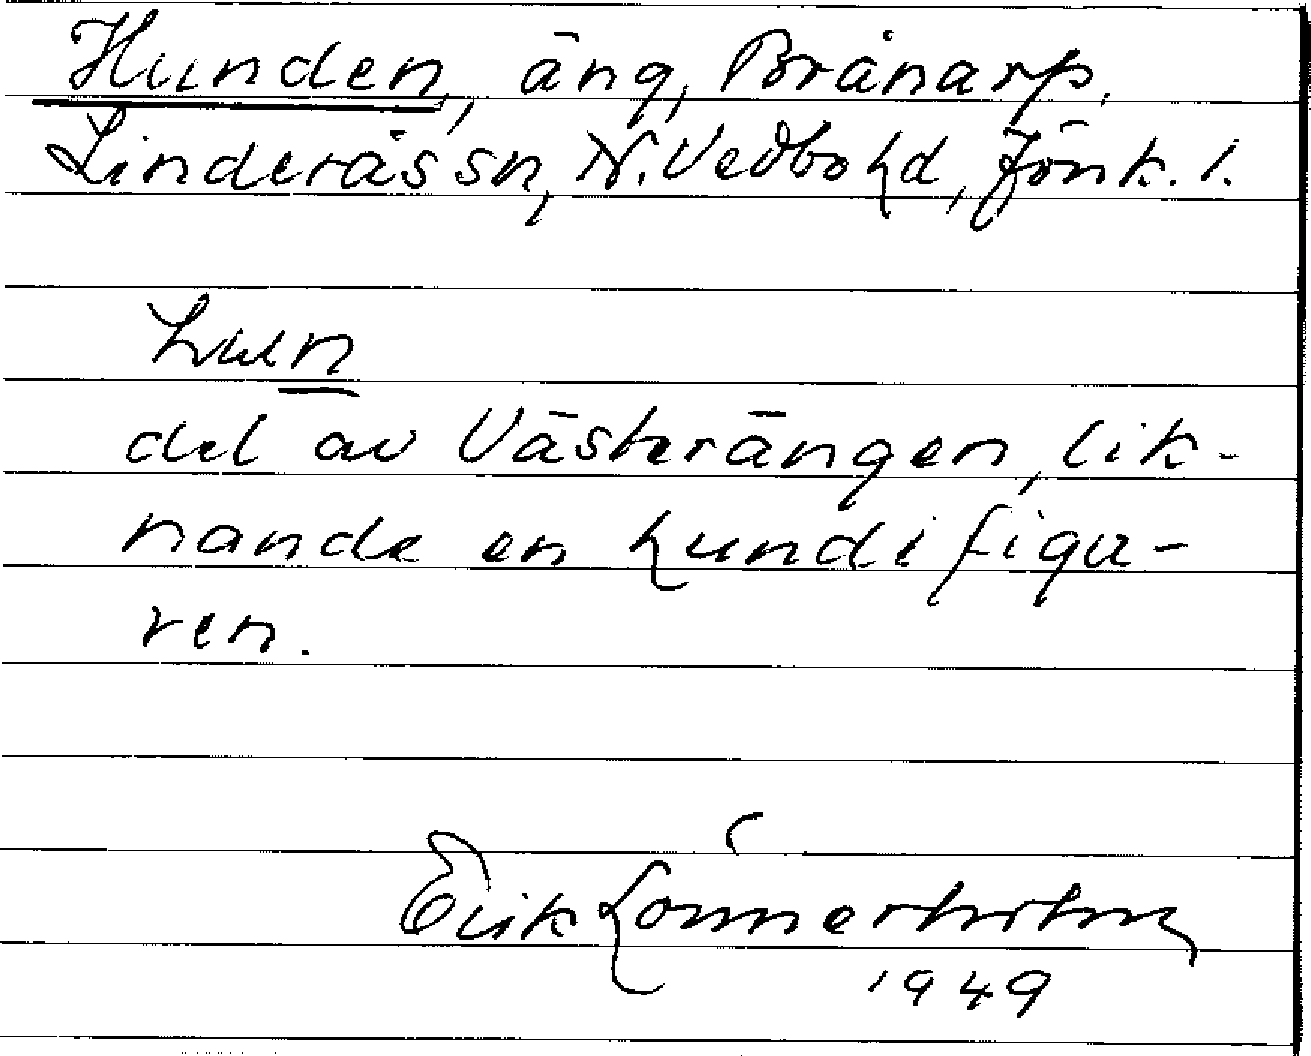 Hunden, äng, Brånarp.
Linderås sn, N. Vedbo hd, Jönk. l.
hun
del av Västerängen, lik-
nande en hund i figu-
ren.
Erik Lönnerholm
1949